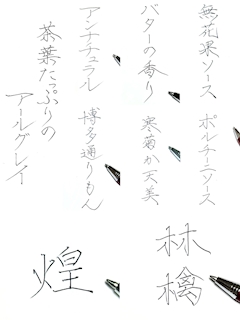 無花果ソース、ポルチーニソース
バターの香り
寒菊か天美
アンナチュラル
博多通りもん
茶葉たっぷりの
アールグレイ
林檎
煌